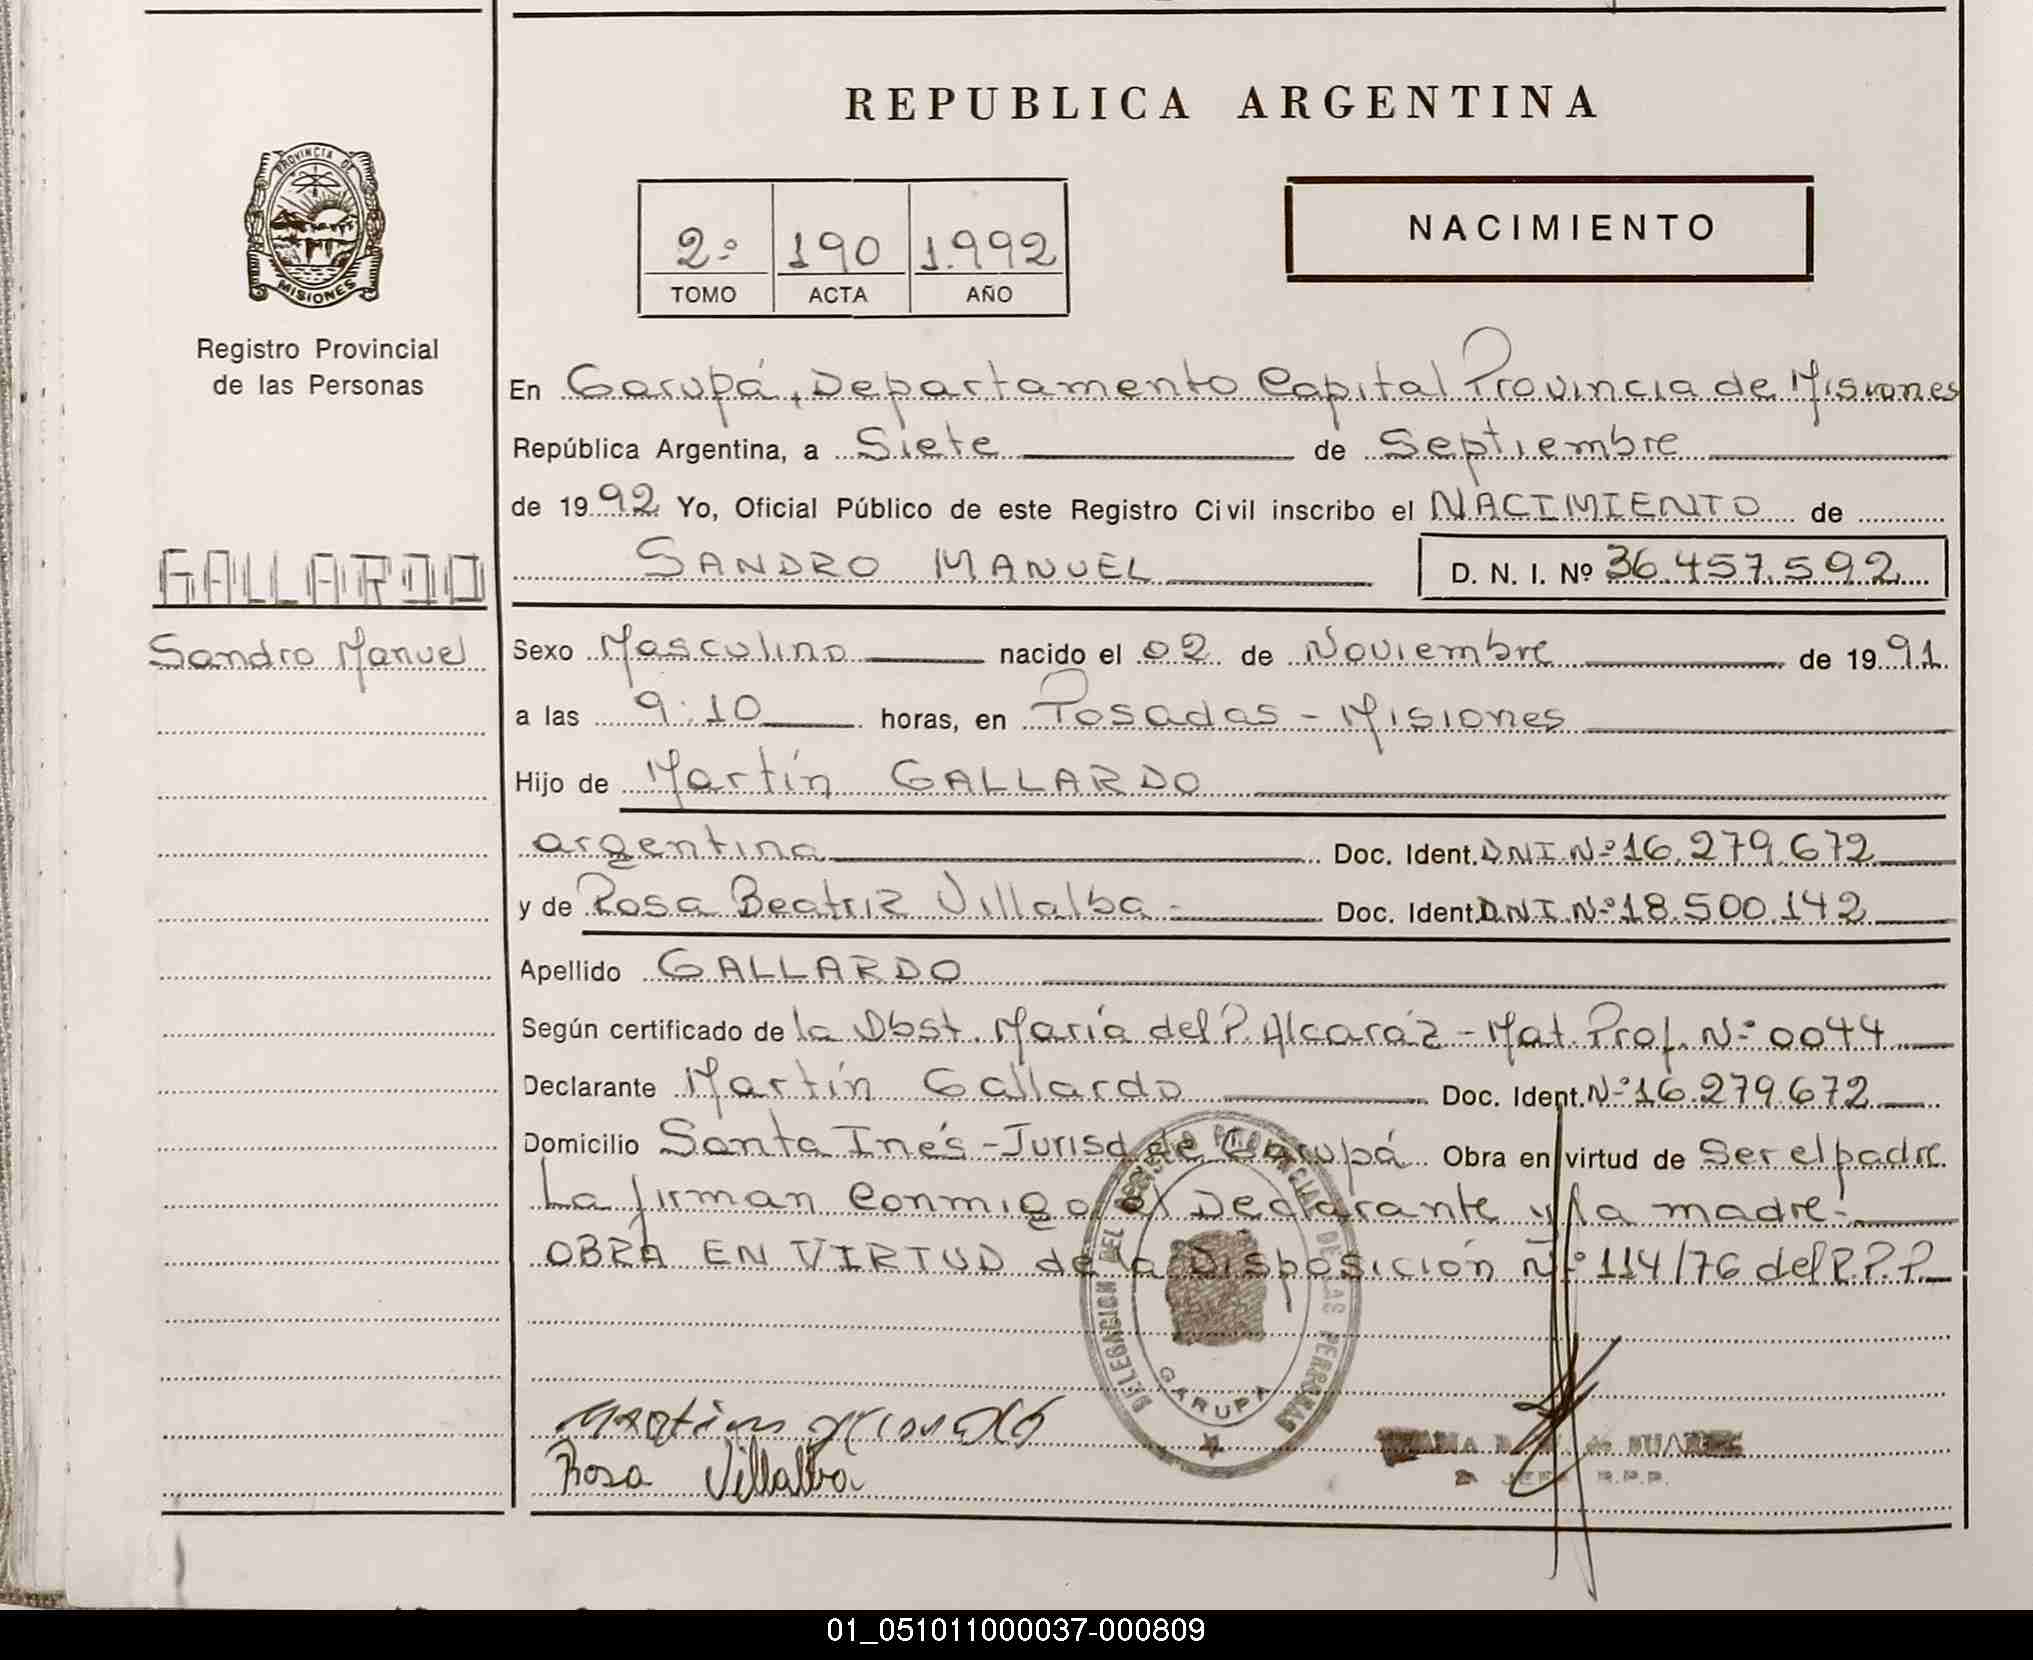 REPUBLICA ARGENTINA
PROVINCIA DE MISIONES
Registro Provincial
de las Personas
2º 190 1.992
TOMO ACTA AÑO
NACIMIENTO
GALLARDO
Sandro Manuel
En Garupá, Departamento Capital Provincia de Misiones
República Argentina, a Siete de Septiembre
de 1992 Yo, Oficial Público de este Registro Civil inscribo el NACIMIENTO de
SANDRO MANUEL D. N. I. Nº 36.457.592
Sexo Masculino nacido el 02 de Noviembre de 1991
a las 9:10 horas, en Posadas - Misiones
Hijo de Martín GALLARDO
argentina Doc. Ident. DNI Nº 16.279.672
y de Rosa Beatriz Villalba.- Doc. Ident. DNI Nº 18.500.142
Apellido GALLARDO
Según certificado de la Obst. María del P. Alcaráz - Mat. Prof. Nº 0044
Declarante Martín Gallardo Doc. Ident. Nº 16.279.672
Domicilio Santa Inés - Jurisd de Garupá Obra en virtud de Ser el padre
La firman conmigo el Declarante y la madre.-
OBRA EN VIRTUD de la Disposición Nº 114/76 del R.P.P.
DELEGACION DEL REGISTRO PROVINCIAL DE LAS PERSONAS
GARUPA
Martin
Rosa Villalba
de SUAREZ
JEFE R.P.P.
01_051011000037-000809